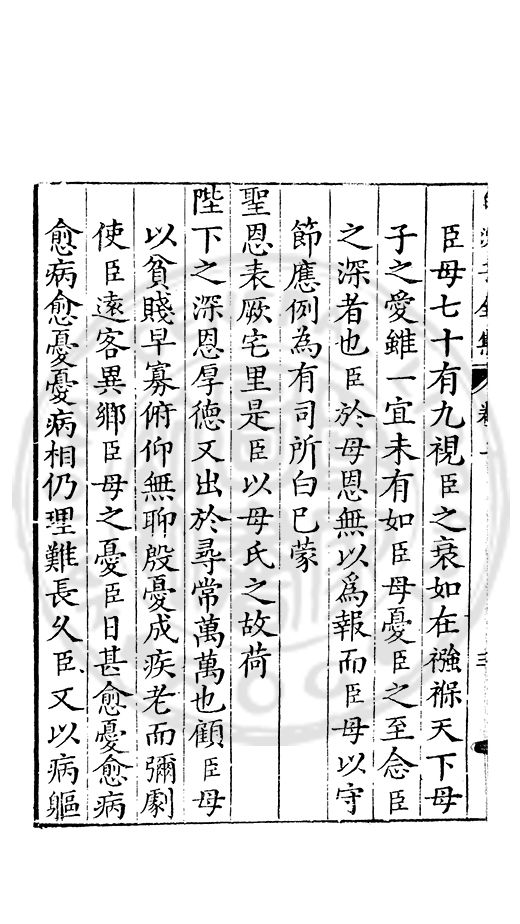 臣母七十有九視臣之衰如在襁褓天下母
子之愛雖一宜未有如臣母憂臣之至念臣
之深者也臣於母恩無以為報而臣母以守
節應例為有司所白巳蒙
聖恩表厥宅里是臣以母氏之故荷
陛下之深恩厚德又出於尋常萬萬也顧臣母
以貧賤早寡俯仰無聊殷憂成疾老而彌劇
使臣遠客異鄉臣母之憂臣日甚愈憂愈病
愈病愈憂憂病相仍理難長久臣又以病軀